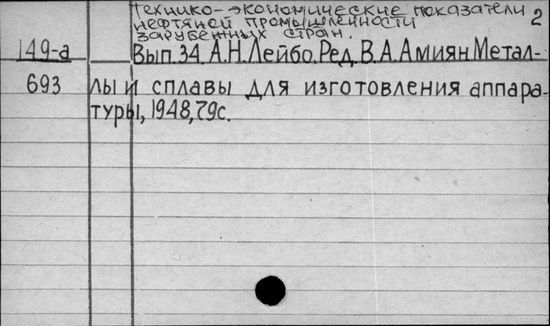 Технико-экономические показатели 2
нефтяной промышленности
зарубежных стран.
149-а Вып.34. А.Н.Лейбо. Ред. В.А.Амиян. Метал-
693 лы и сплавы для изготовления аппара-
туры, 1948, 79с.